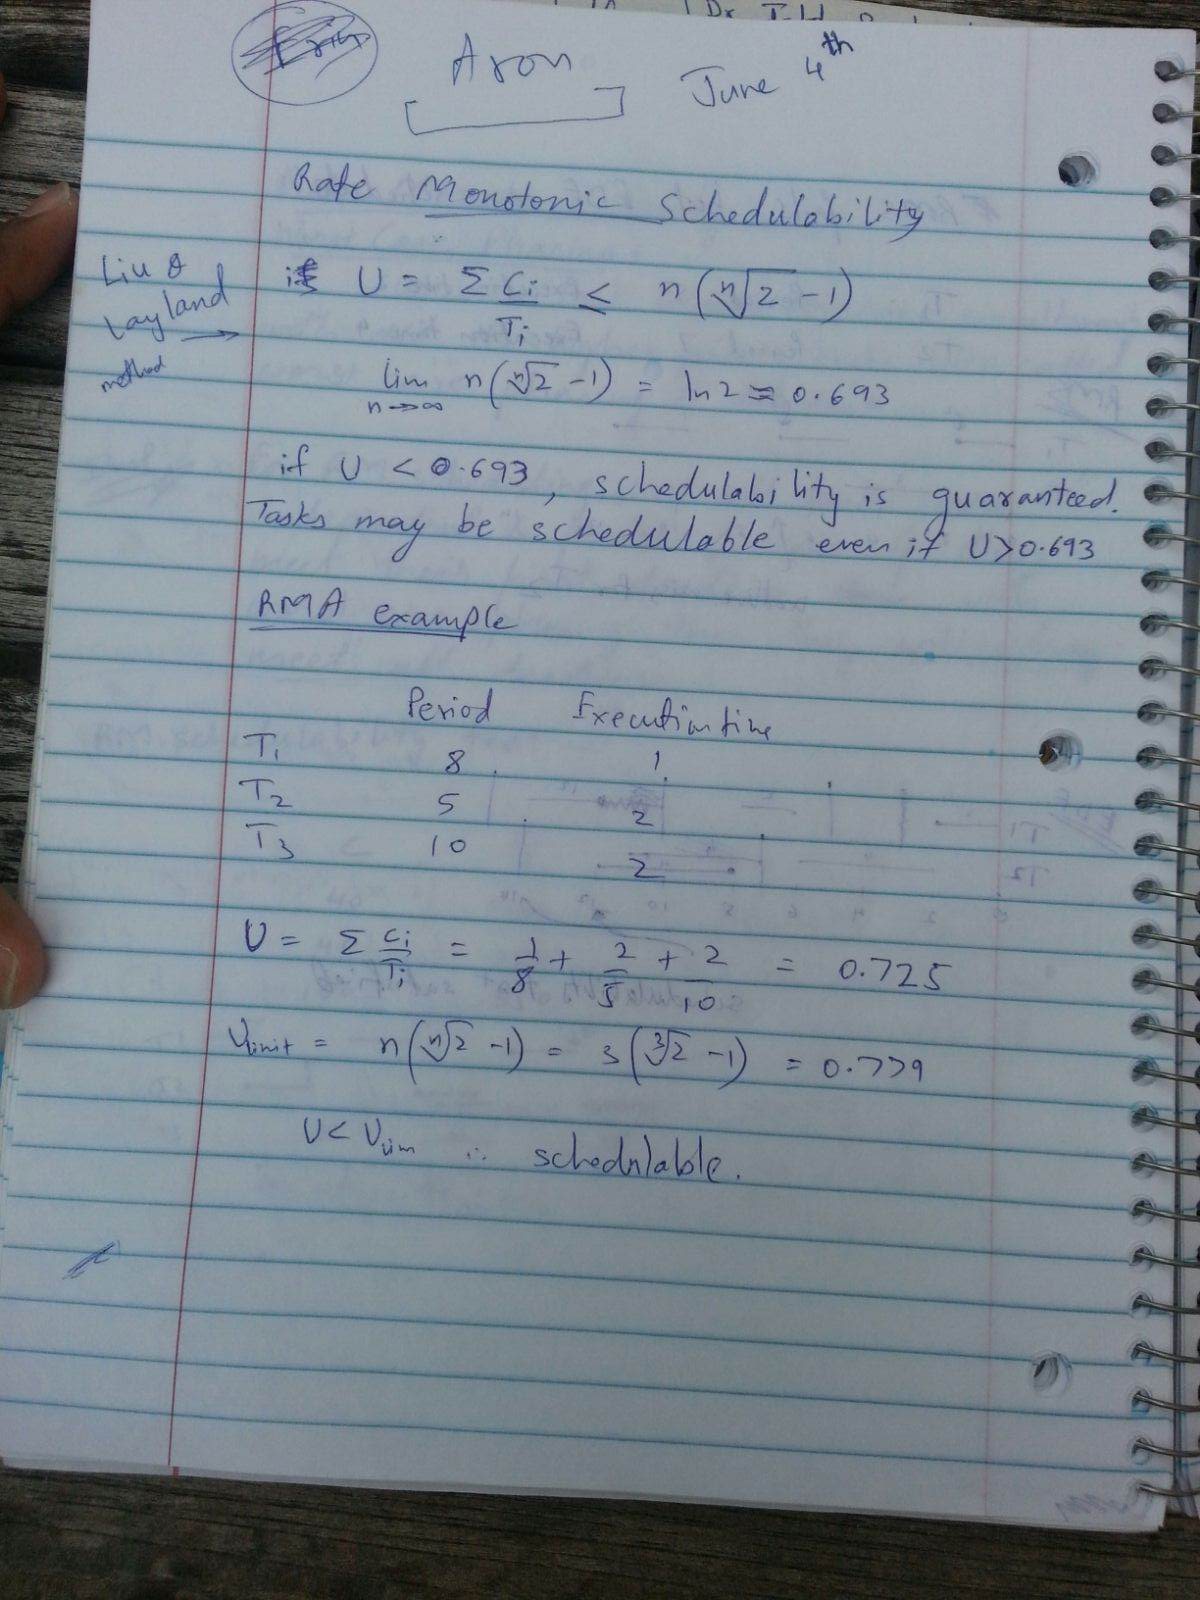 Aron
June 4th
Rate Monotonic Schedulability
Liu &
Layland
method
if U = Σ Ci/Ti ≤ n(ⁿ√2 - 1)
lim n→∞ n(ⁿ√2 - 1) = ln 2 ≈ 0.693
if U < 0.693, schedulability is guaranteed.
Tasks may be schedulable even if U > 0.693
RMA example
Period Execution time
T1 8 1
T2 5 2
T3 10 2
U = Σ Ci/Ti = 1/8 + 2/5 + 2/10 = 0.725
Ulimit = n(ⁿ√2 - 1) = 3(³√2 - 1) = 0.779
U < Ulim ∴ schedulable.